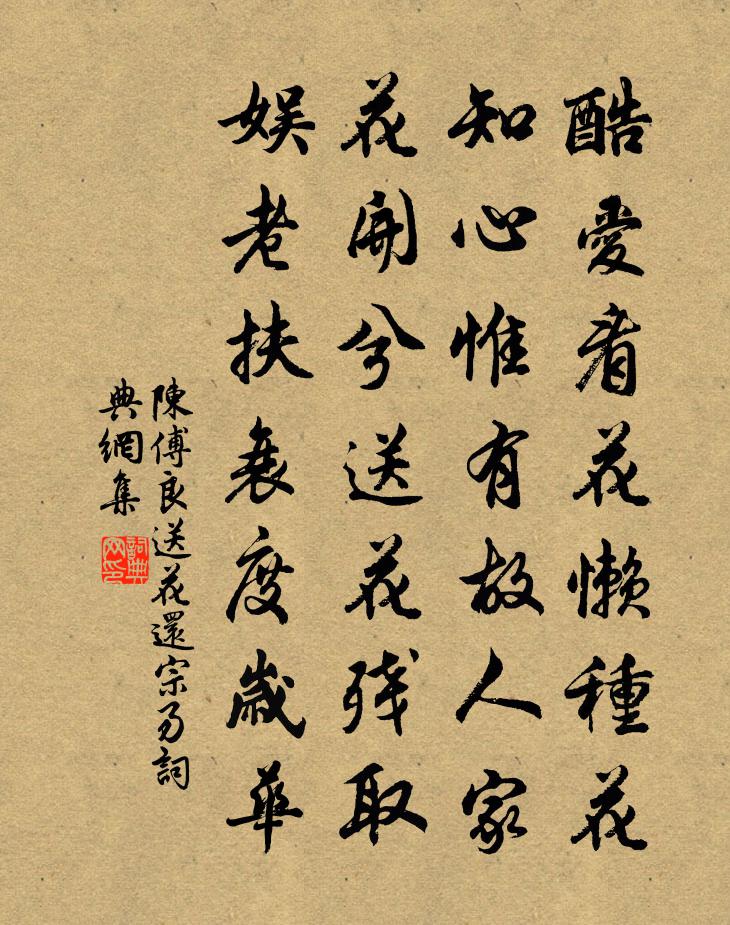 酷愛看花懶種花
知心惟有故人家
花開兮送花殘取
娛老扶衰度歲華
陳傅良送花還宗易詞
典網集
詞典
网印